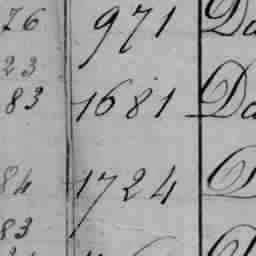 76 971 Da
23
83 1681 Da
84 1724
83